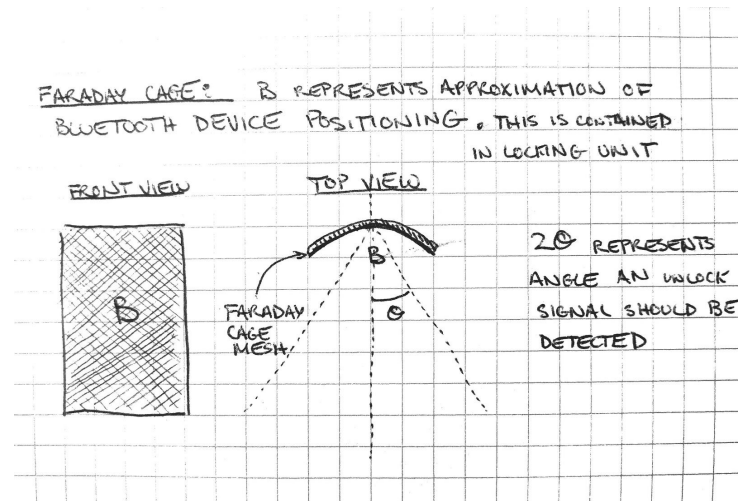 FARADAY CAGE: B REPRESENTS APPROXIMATION OF
BLUETOOTH DEVICE POSITIONING. THIS IS CONTAINED
IN LOCKING UNIT
FRONT VIEW
TOP VIEW
B
B
θ
FARADAY
CAGE
MESH
2θ REPRESENTS
ANGLE AN UNLOCK
SIGNAL SHOULD BE
DETECTED